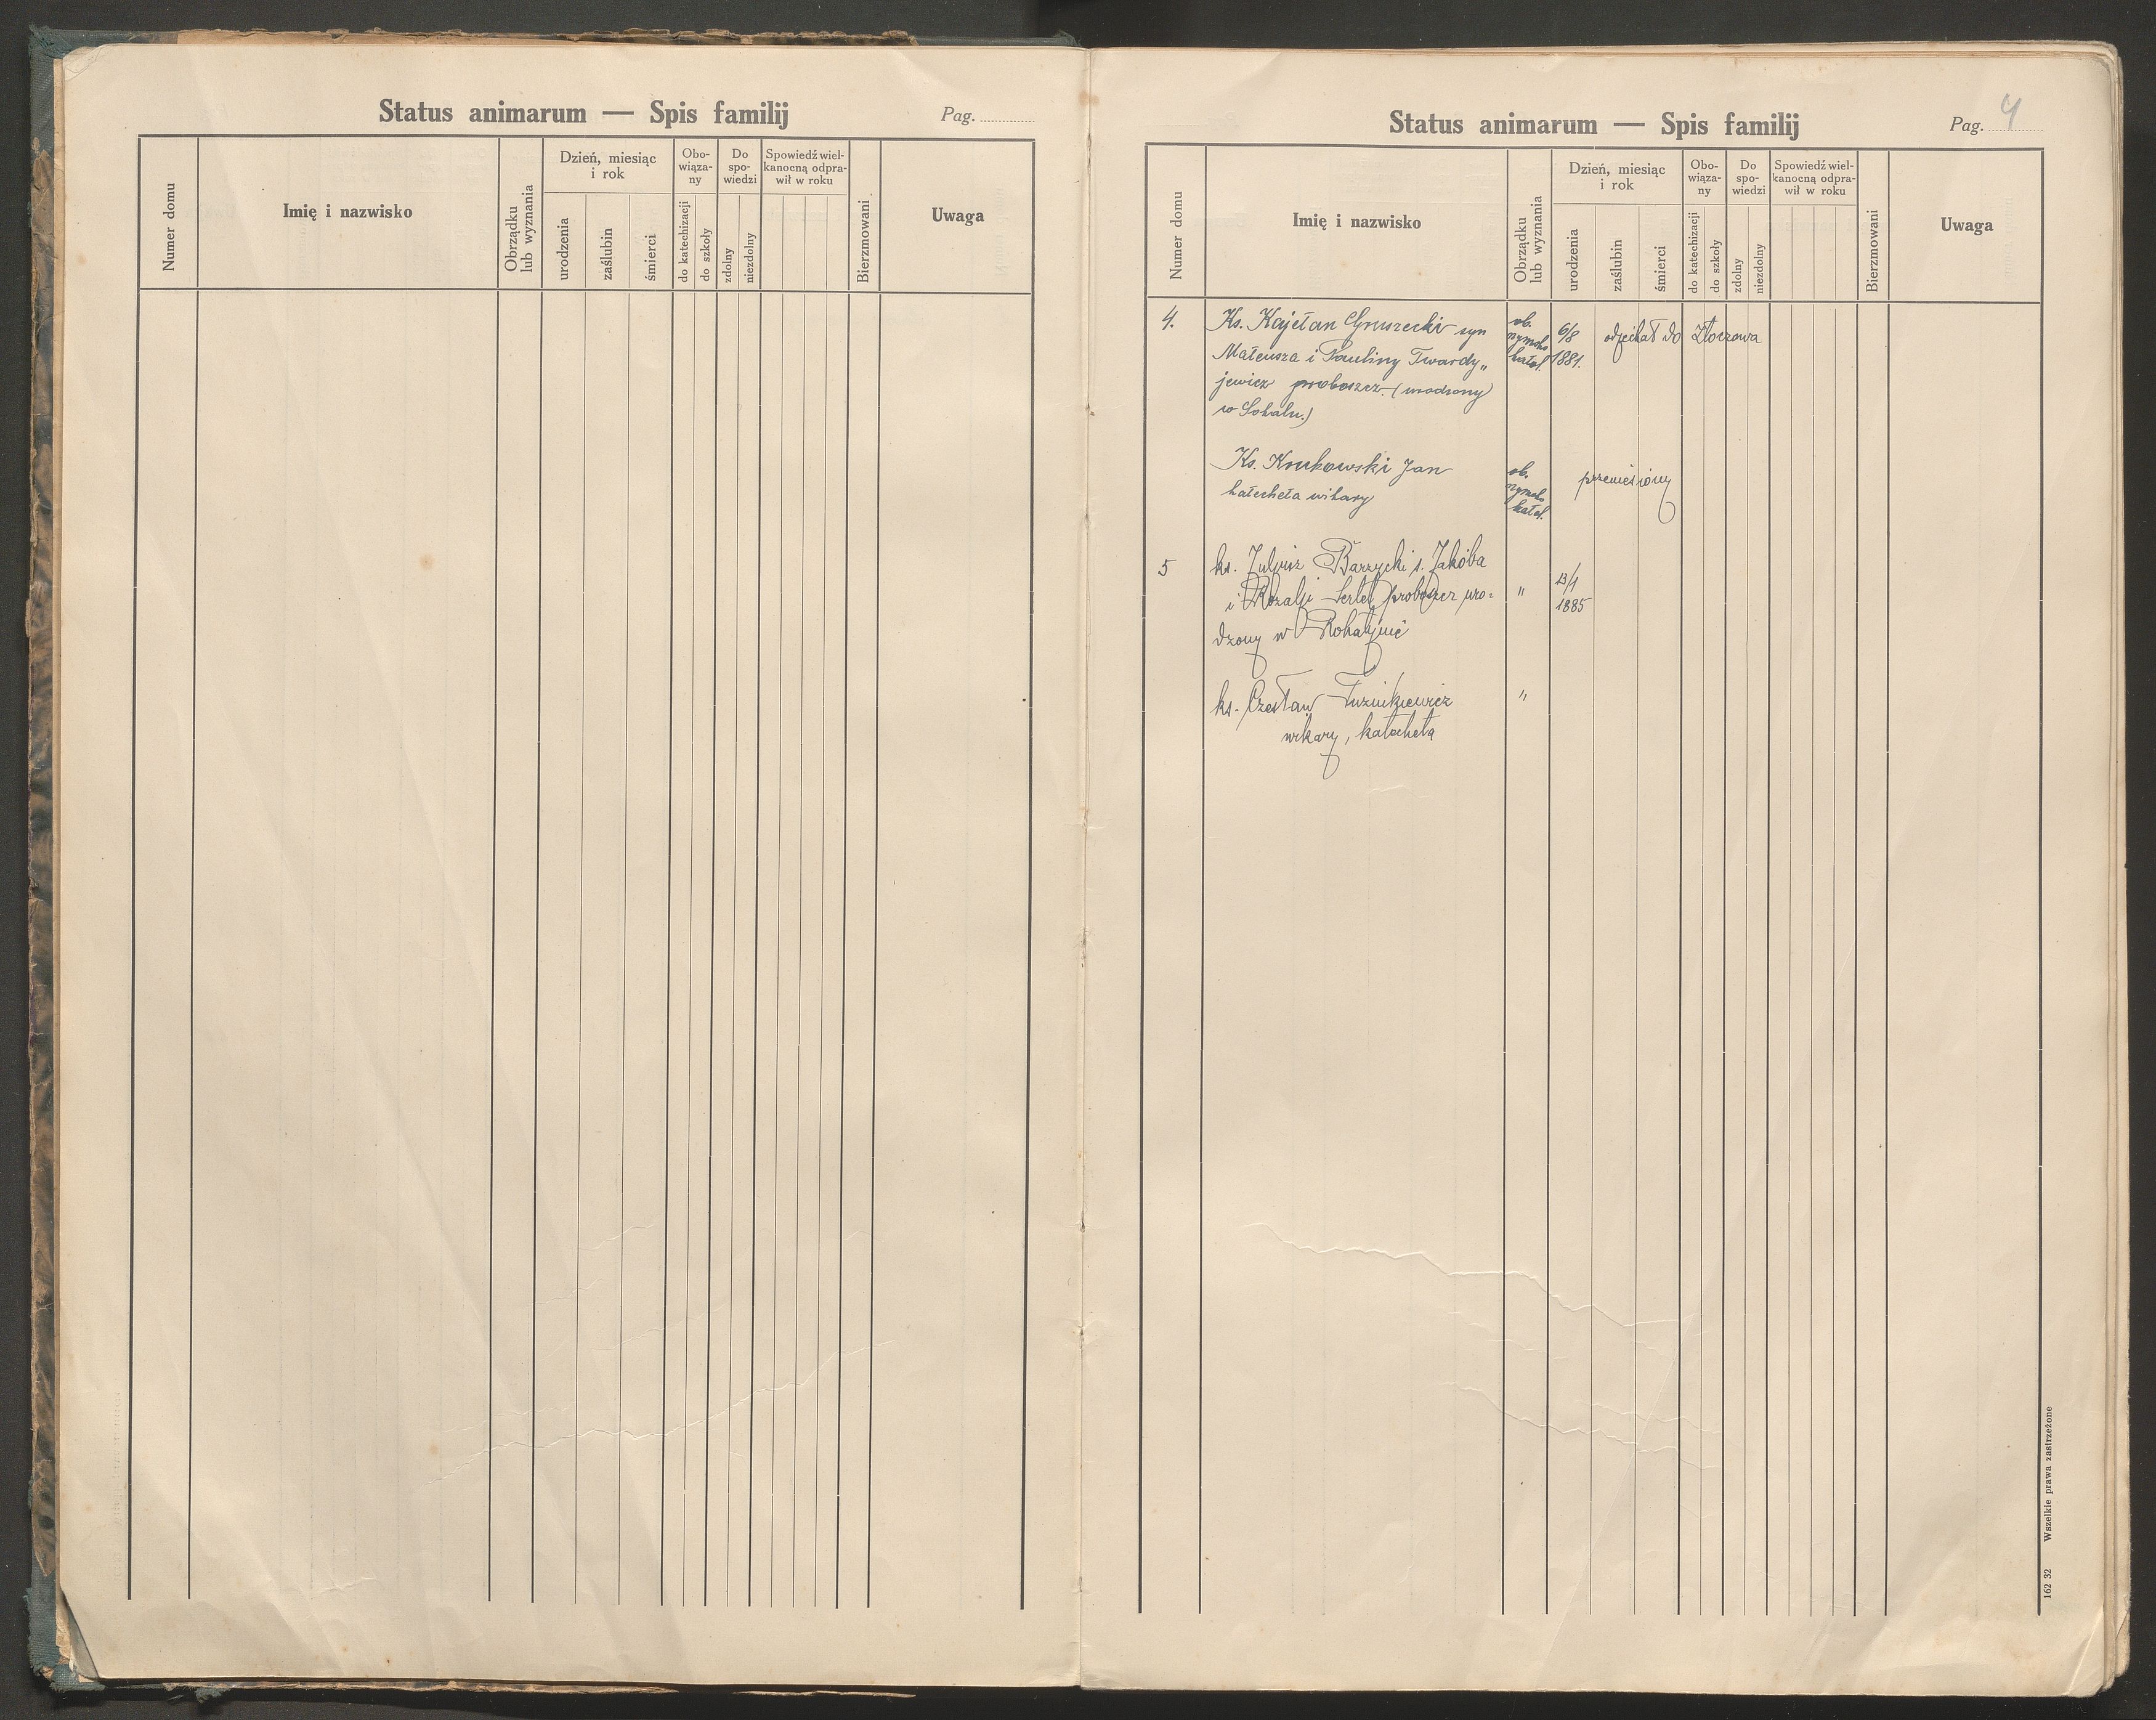 Status animarum — Spis familij
Pag.
Numer domu
Imię i nazwisko
Obrządku
lub wyznania
Dzień, miesiąc
i rok
urodzenia
zaślubin
śmierci
Obo-
wiąza-
ny
do katechizacji
do szkoły
Do
spo-
wiedzi
zdolny
niezdolny
Spowiedź wiel-
kanocną odpra-
wił w roku
Bierzmowani
Uwaga
Status animarum — Spis familij
Pag. 4
Numer domu
Imię i nazwisko
Obrządku
lub wyznania
Dzień, miesiąc
i rok
urodzenia
zaślubin
śmierci
Obo-
wiąza-
ny
do katechizacji
do szkoły
Do
spo-
wiedzi
zdolny
niezdolny
Spowiedź wiel-
kanocną odpra-
wił w roku
Bierzmowani
Uwaga
4. Ks. Kajetan Gruszecki syn
Mateusza i Pauliny Twardy„
jewicz proboszcz. (urodzony
w Sokalu.)
ob.
rzymsko
katol.
6/8
1881.
odjechał do Złoczowa
Ks. Krukowski Jan
katecheta wikary
ob.
rzymsko
katol.
przeniesiony
5 ks. Juljusz Barzycki s. Jakóba
i Rozalji proboszcz uro-
dzony w Rohatynie
"
13/1
1885
ks. Czesław
wikary, katecheta
"
162 32 Wszelkie prawa zastrzeżone